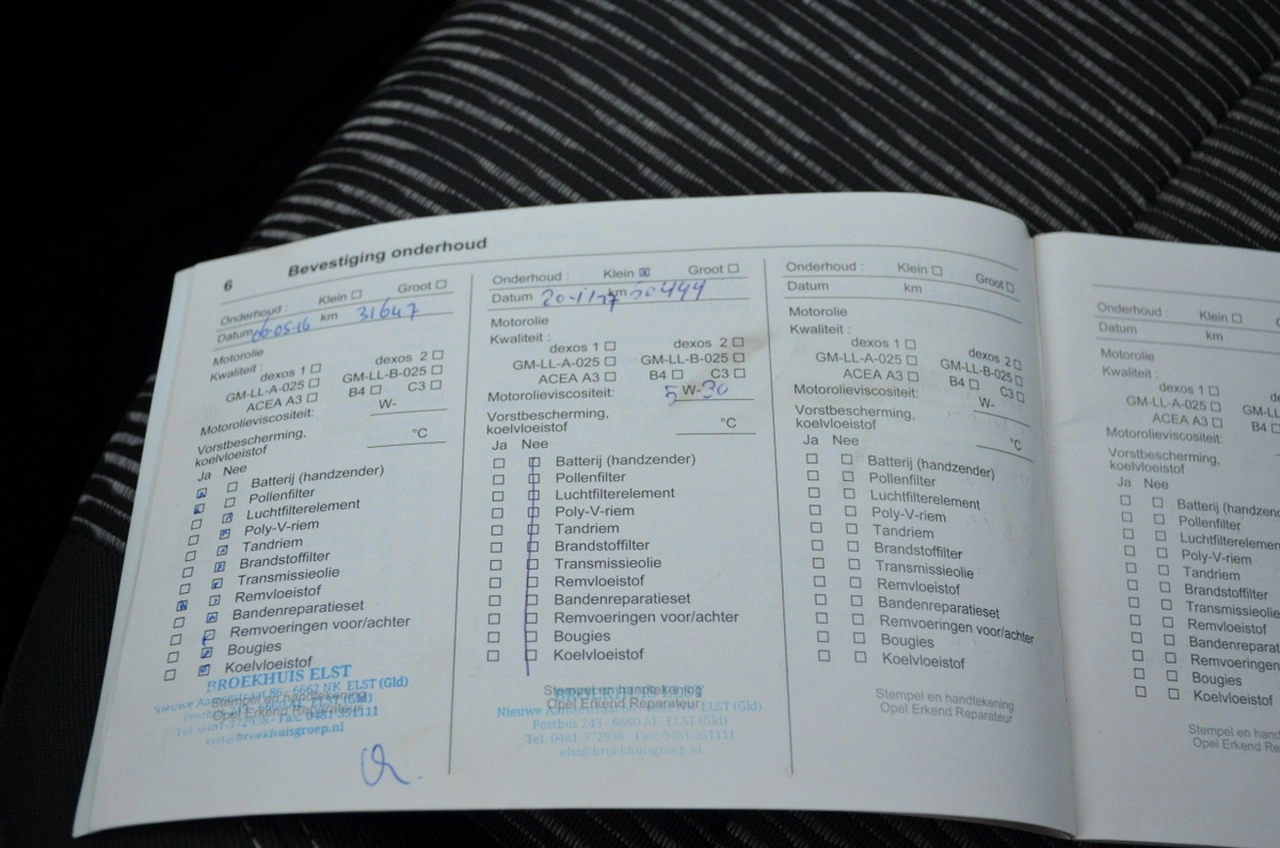 6 Bevestiging onderhoud
Onderhoud : Klein Groot
Datum 06-05-16 km 31647
Motorolie
Kwaliteit :
dexos 1 dexos 2
GM-LL-A-025 GM-LL-B-025
ACEA A3 B4 C3
Motorolieviscositeit: W-
Vorstbescherming,
koelvloeistof °C
Ja Nee
Batterij (handzender)
Pollenfilter
Luchtfilterelement
Poly-V-riem
Tandriem
Brandstoffilter
Transmissieolie
Remvloeistof
Bandenreparatieset
Remvoeringen voor/achter
Bougies
Koelvloeistof
BROEKHUIS ELST
Stempel en handtekening
Opel Erkend Reparateur
Tel. 0481-372938 - Fax: 0481-351111
elst@broekhuisgroep.nl
Onderhoud : Klein Groot
Datum 20-1/17 km 50444
Motorolie
Kwaliteit :
dexos 1 dexos 2
GM-LL-A-025 GM-LL-B-025
ACEA A3 B4 C3
Motorolieviscositeit: 5 W-30
Vorstbescherming,
koelvloeistof °C
Ja Nee
Batterij (handzender)
Pollenfilter
Luchtfilterelement
Poly-V-riem
Tandriem
Brandstoffilter
Transmissieolie
Remvloeistof
Bandenreparatieset
Remvoeringen voor/achter
Bougies
Koelvloeistof
Stempel en handtekening
Opel Erkend Reparateur
Nieuwe ELST (Gld)
Postbus 243 - 6660 AE ELST (Gld)
Tel. 0481-372938 - Fax: 0481-351111
elst@broekhuisgroep.nl
Onderhoud : Klein Groot
Datum km
Motorolie
Kwaliteit :
dexos 1 dexos 2
GM-LL-A-025 GM-LL-B-025
ACEA A3 B4 C3
Motorolieviscositeit: W-
Vorstbescherming,
koelvloeistof °C
Ja Nee
Batterij (handzender)
Pollenfilter
Luchtfilterelement
Poly-V-riem
Tandriem
Brandstoffilter
Transmissieolie
Remvloeistof
Bandenreparatieset
Remvoeringen voor/achter
Bougies
Koelvloeistof
Stempel en handtekening
Opel Erkend Reparateur
Onderhoud : Klein
Datum km
Motorolie
Kwaliteit :
dexos 1 de
GM-LL-A-025 GM-LL
ACEA A3 B4
Motorolieviscositeit:
Vorstbescherming,
koelvloeistof
Ja Nee
Batterij (handzend
Pollenfilter
Luchtfilterelemen
Poly-V-riem
Tandriem
Brandstoffilter
Transmissieolie
Remvloeistof
Bandenreparat
Remvoeringen
Bougies
Koelvloeistof
Stempel en hand
Opel Erkend Re